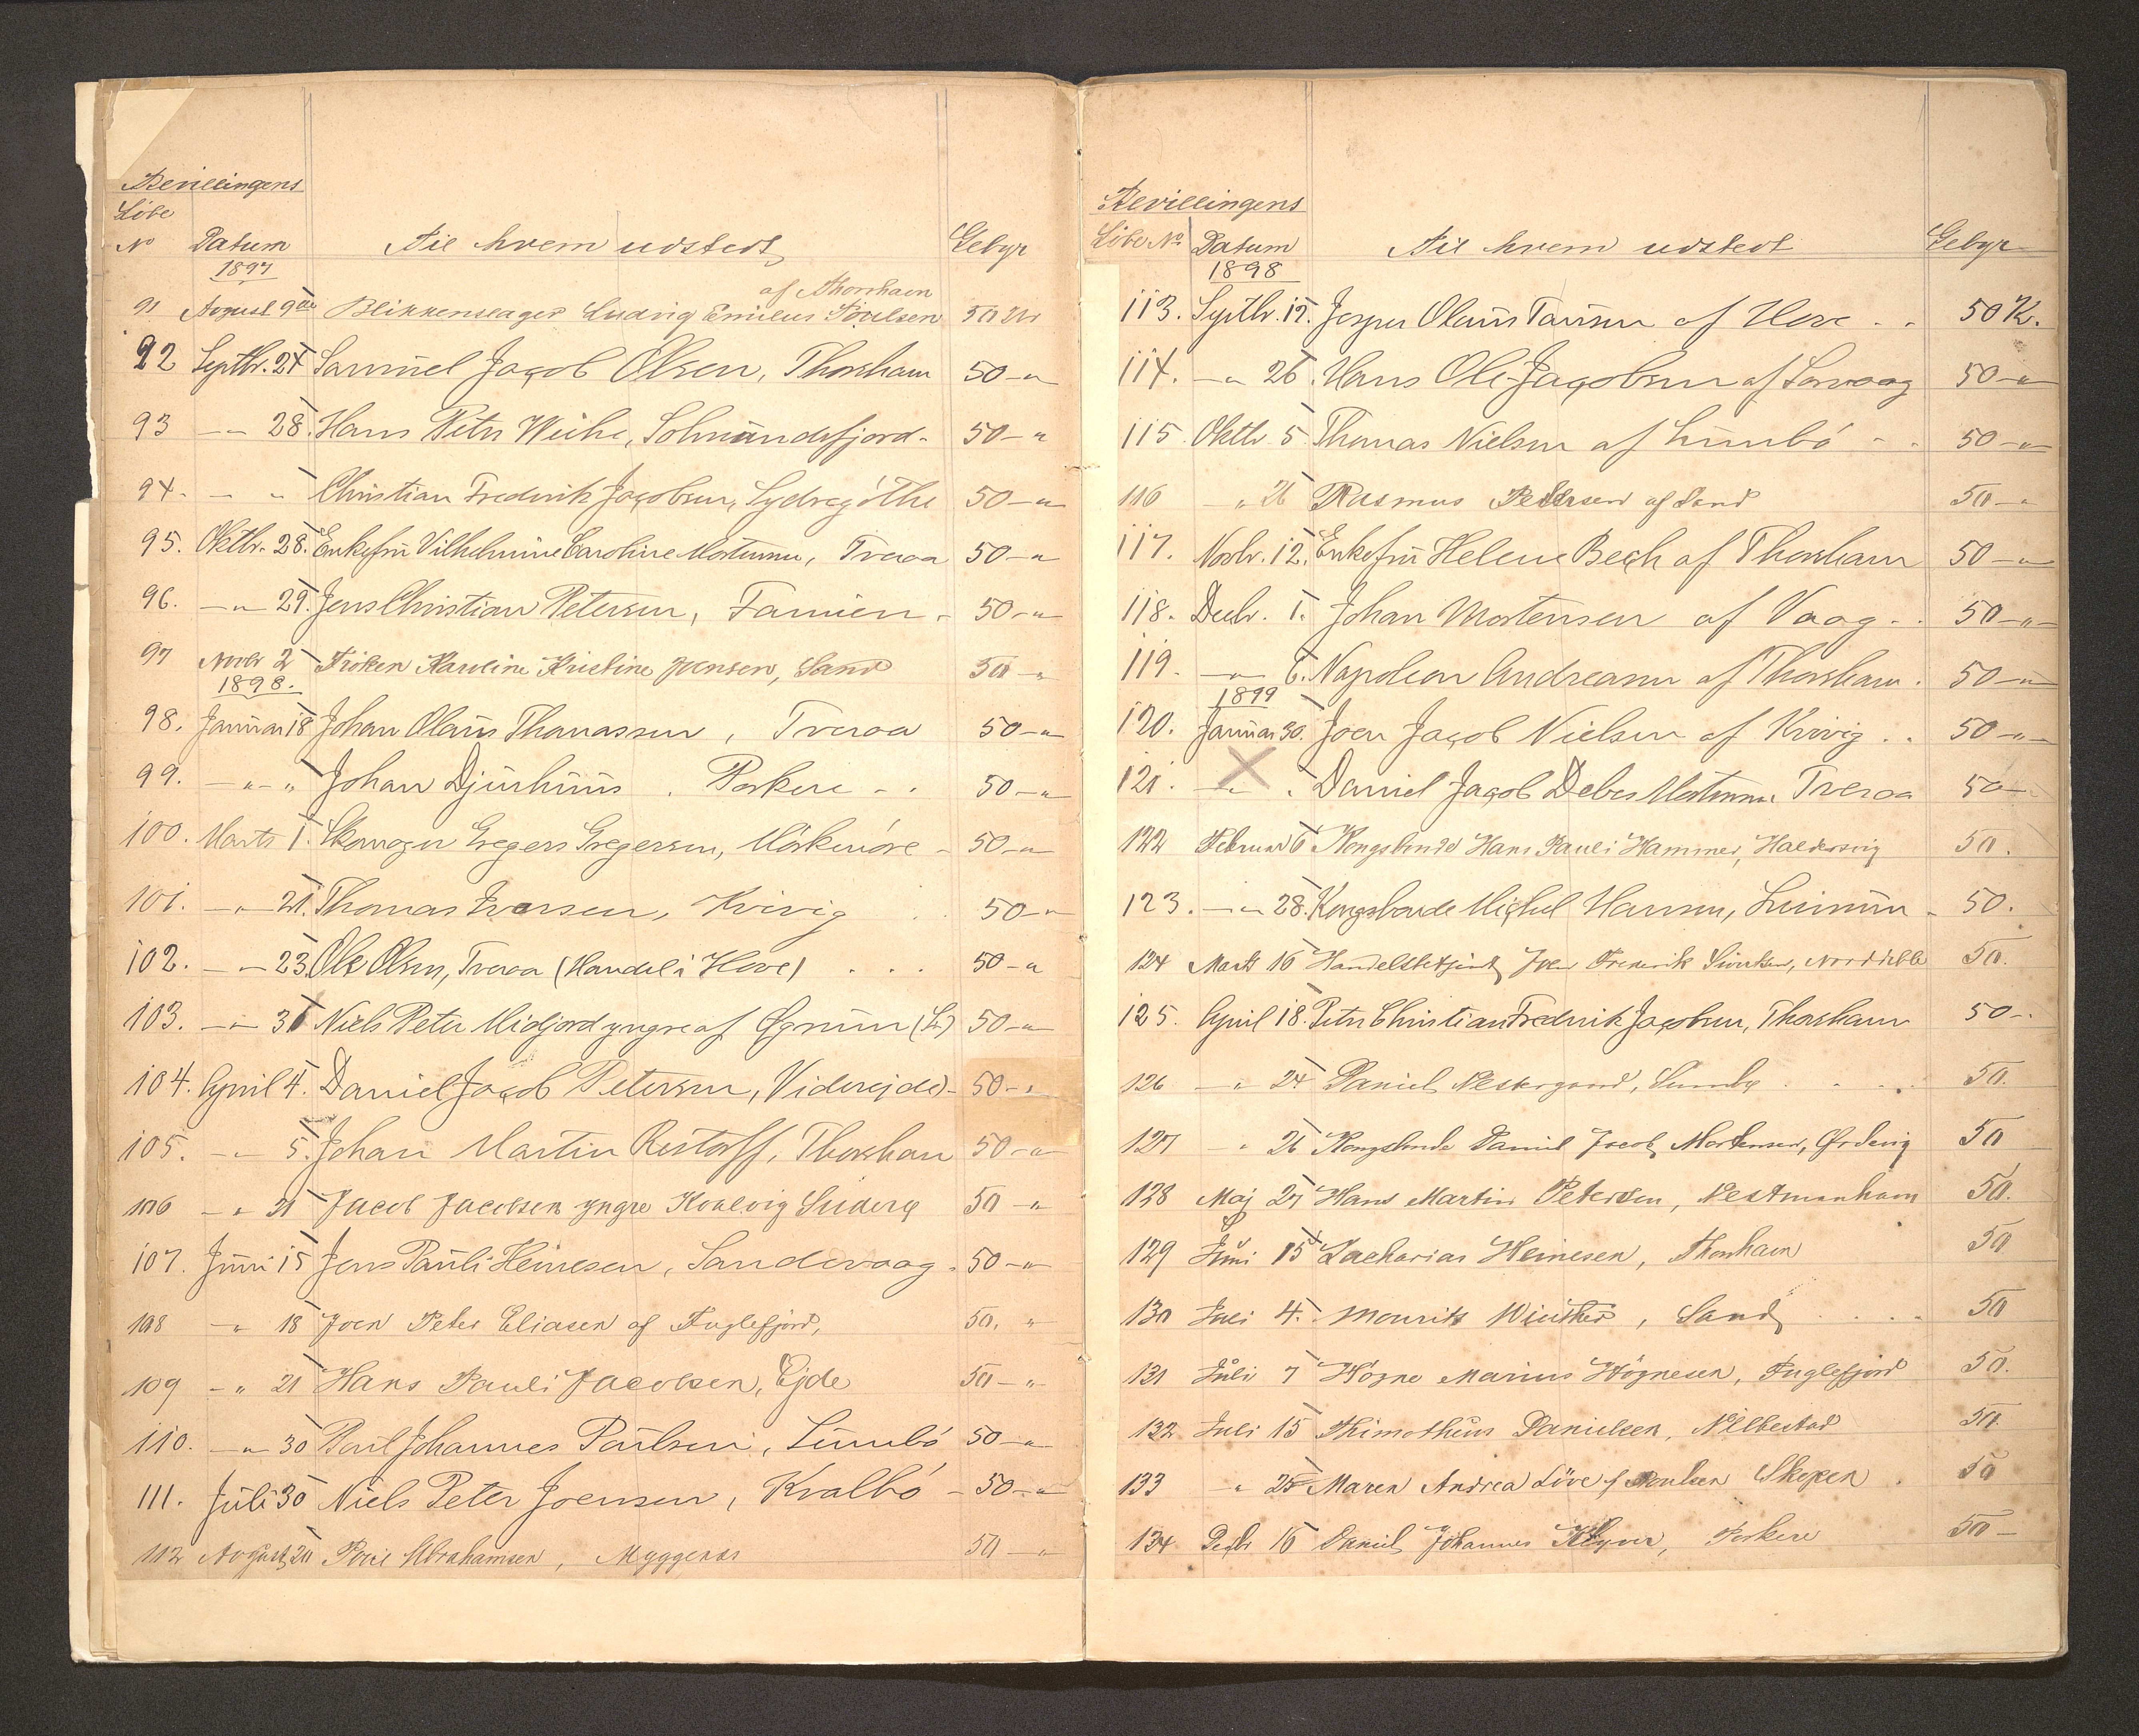 Bevillingens
Löbe
No Datum Til hvem udstedt Gebyr
1897
af Thorshavn
91 August 9de Blikkenslager Ludvig Emilius Poulsen 50 Kr
92 Septbr. 24 Samuel Jacob Olsen, Thorshavn 50 - "
93 - " 28. Hans Peter Weihe, Solmundefjord - 50 - "
94. - " Christian Frederik Jacobsen, Sydregöthe 50 - "
95. Oktbr. 28. Enkefru Vilhelmine Caroline Mortensen, Tveraa 50 - "
96. - " 29. Jens Christian Petersen, Famien - 50 - "
97 Novbr 2 Fröken Karoline Kristine Jensen, Sand 50 - "
1898.
98. Januar 18 Johan Olaus Thomassen, Tveraa 50 - "
99. - " - " Johan Djurhuus . Porkere - . 50 - "
100. Marts 1. Skomager Gregers Gregersen, Mörkenöre - 50 - "
101. - " 21. Thomas Iversen, Kvivig . . 50 - "
102. - " 23. Ole Olsen, Tveraa (Handel i Hove) . . . 50 - "
103. - " 31 Niels Peter Midjord yngre af Øgrum (L) 50 - "
104. April 4. Daniel Jacob Petersen, Viderejde - 50 - "
105. - " 5. Johan Martin Restorff, Thorshavn 50 - "
106 - " 21 Jacob Jacobsen yngre Kvalvig Suderø 50 - "
107. Juni 15 Jens Pauli Heinesen, Sandevaag . 50 - "
108 - " 18 Joen Peter Eliasen af Fuglefjord, 50. "
109 - " 21 Hans Pauli Jacobsen, Ejde 50 - "
110. - " 30 Poul Johannes Poulsen, Sumbö 50 - "
111. Juli 30 Niels Peter Joensen, Kvalbö - 50 - "
112 August 20 Poul Abrahamsen, Myggenæs 50 - "
Bevillingens
Löbe No Datum Til hvem udstedt Gebyr
1898
113. Septbr. 12. Jesper Olaus Tausen af Hove . . 50 K.
114. - " 26. Hans Ole Jacobsen af Sorvaag 50 - "
115. Oktbr 5. Thomas Nielsen af Sumbö - . 50 - "
116 - " 26 Rasmus Petersen af Sand 50 - "
117. Novbr. 12. Enkefru Helene Bech af Thorshavn 50 - "
118. Decbr. 1. Johan Mortensen af Vaag . . 50 - "
119. - " 6. Napoleon Andreasen af Thorshavn . 50 - "
1899
120. Januar 30. Joen Jacob Nielsen af Kvivig . . 50 - "
121. - " . Daniel Jacob Debes Mortensen Tveraa 50 -
122 Februar 6 Kongsbonde Hans Pauli Hammer, Haldersvig 50.
123. - " 28. Kongsbonde Michel Hansen, Luimun - 50.
124 Marts 16 Handelsbetjent Joen Frederik Sivertsen, Norddeble 50.
125. April 18. Peter Christian Fredrik Jacobsen, Thorshavn 50 -.
126 - " 24 Daniel Vestergaard, Sumbø . . . . 50.
127 - " 26 Kongsbonde Daniel Jacob Mortensen, Ørdevig 50
128 Maj 27 Hans Martin Petersen, Vestmanhavn 50.
129 Juni 15 Zacharias Heinesen, Thorshavn 50
130 Juli 4. Mourits Winther, Sand . . . . 50
131 Juli 7 Högne Marius Högnesen, Fuglefjord 50.
132 Juli 15 Thimotheus Danielsen, Velbestad 50.
133 " 25 Maren Andrea Löve f Poulsen Skopen . 50
134 Decbr 16 Daniel Johannes Klyver, Porkere 50 -